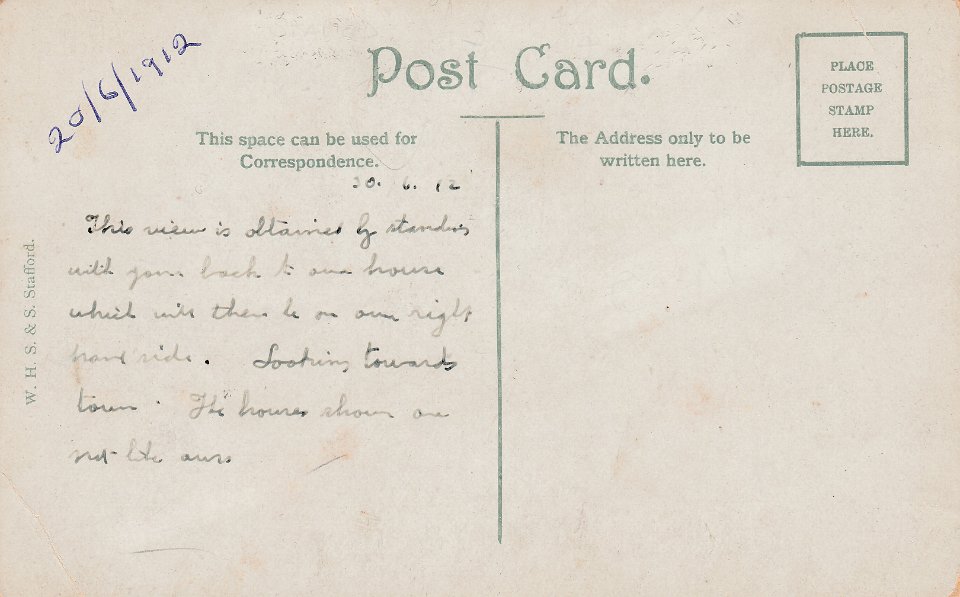 20/6/1912
Post Card.
PLACE
POSTAGE
STAMP
HERE.
This space can be used for
Correspondence.
The Address only to be
written here.
20. 6. 12
This view is obtained by standing
with your back to our house
which will then be on our right
hand side. Looking towards
town. The houses shown are
not like ours
W. H. S. & S. Stafford.